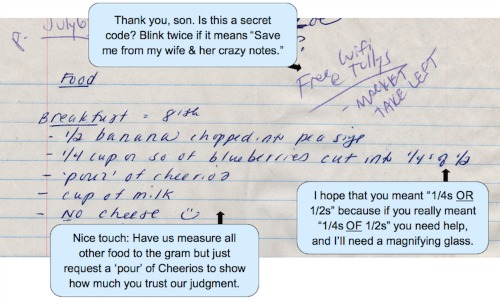 Thank you, son. Is this a secret
code? Blink twice if it means “Save
me from my wife & her crazy notes.”
?
Free Wifi
Tullys
- MARKET
TAKE LEFT
Food
Breakfast = 8ish
- 1/2 banana chopped into pea size
- 1/4 cup or so of blueberries cut into 1/4s of 1/2
- 'pour' of cheerios
- cup of milk
- No cheese
I hope that you meant “1/4s OR
1/2s” because if you really meant
“1/4s OF 1/2s” you need help,
and I’ll need a magnifying glass.
Nice touch: Have us measure all
other food to the gram but just
request a ‘pour’ of Cheerios to show
how much you trust our judgment.